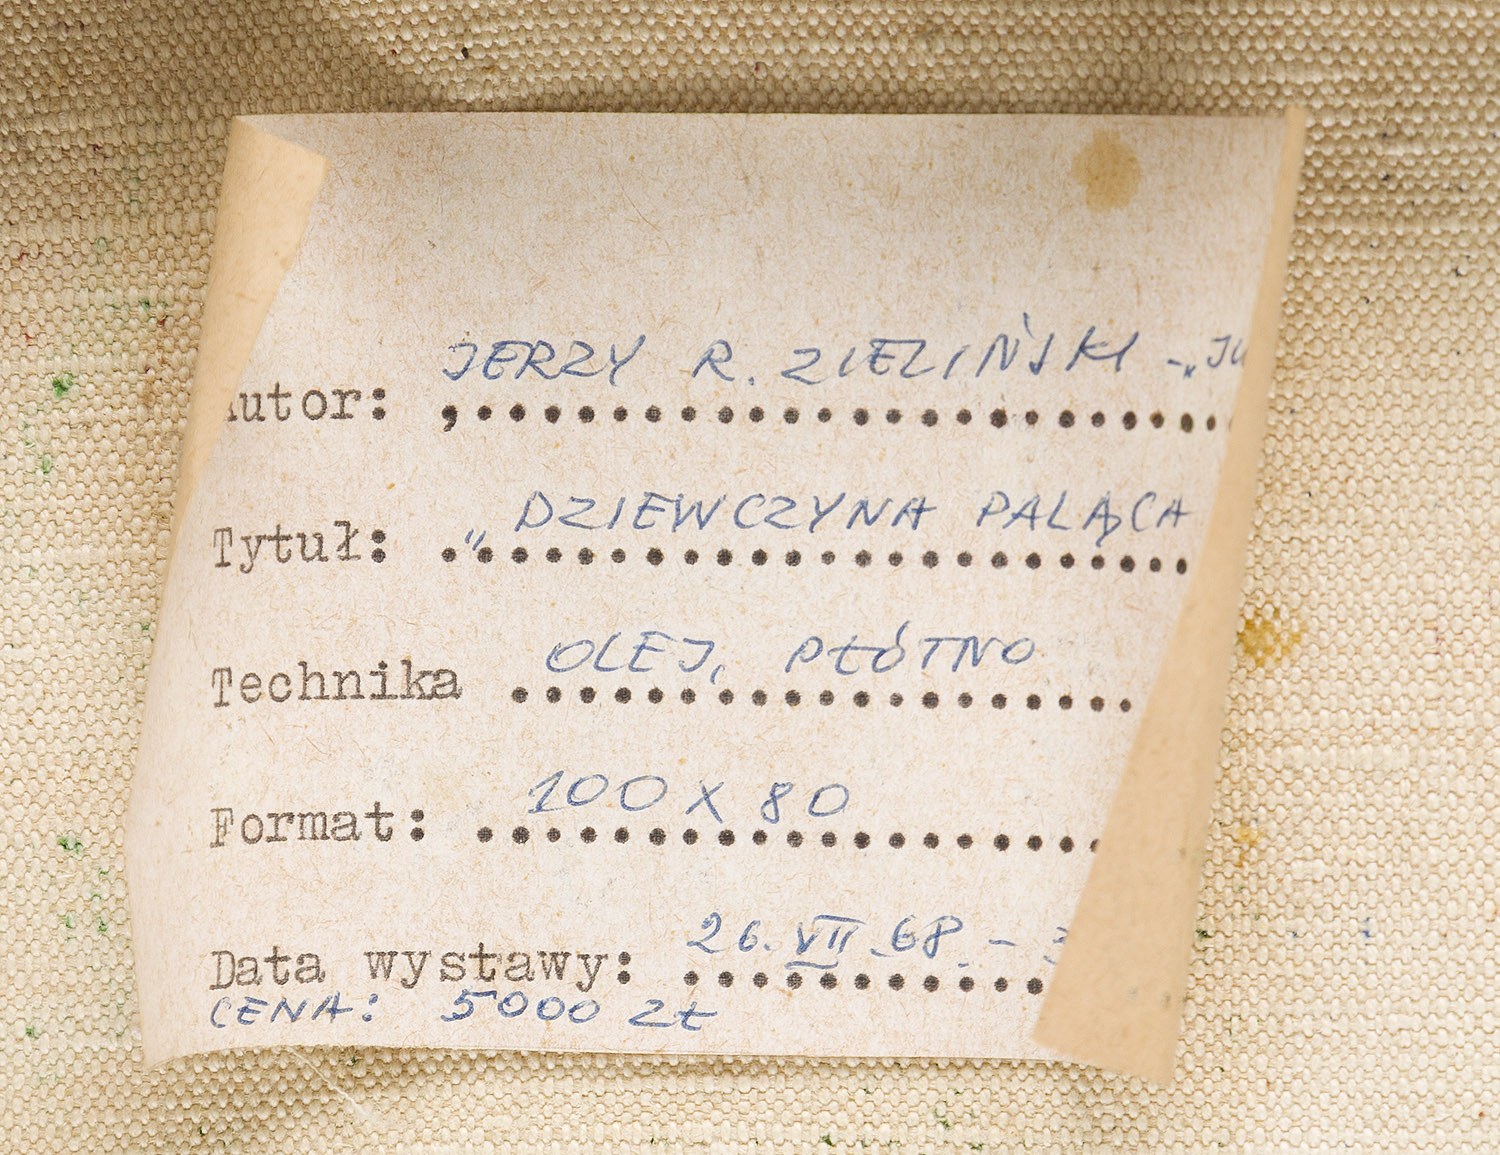 Autor: JERZY R. ZIELIŃSKI - „JU
Tytuł: „DZIEWCZYNA PALĄCA
Technika OLEJ, PŁÓTNO
Format: 100 X 80
Data wystawy: 26. VII. 68. -
CENA: 5000 zł